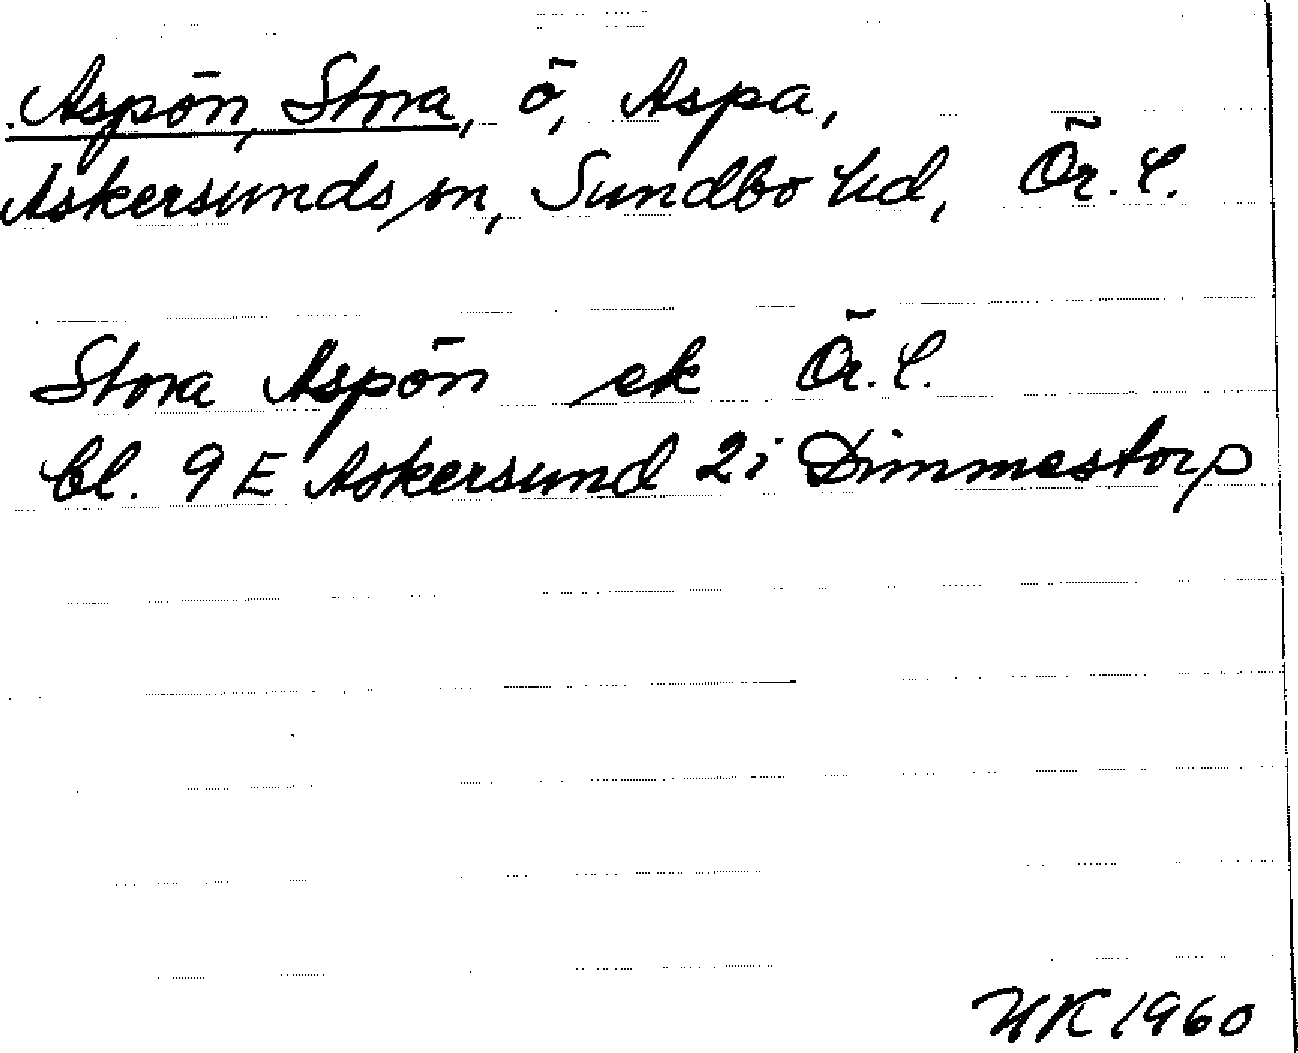 Aspön, Stora, ö, Aspa,
Askersunds sn, Sundbo hd, Ör. l.
Stora Aspön ek Ör. l.
bl. 9 E Askersund 2i Dimmestorp
1960